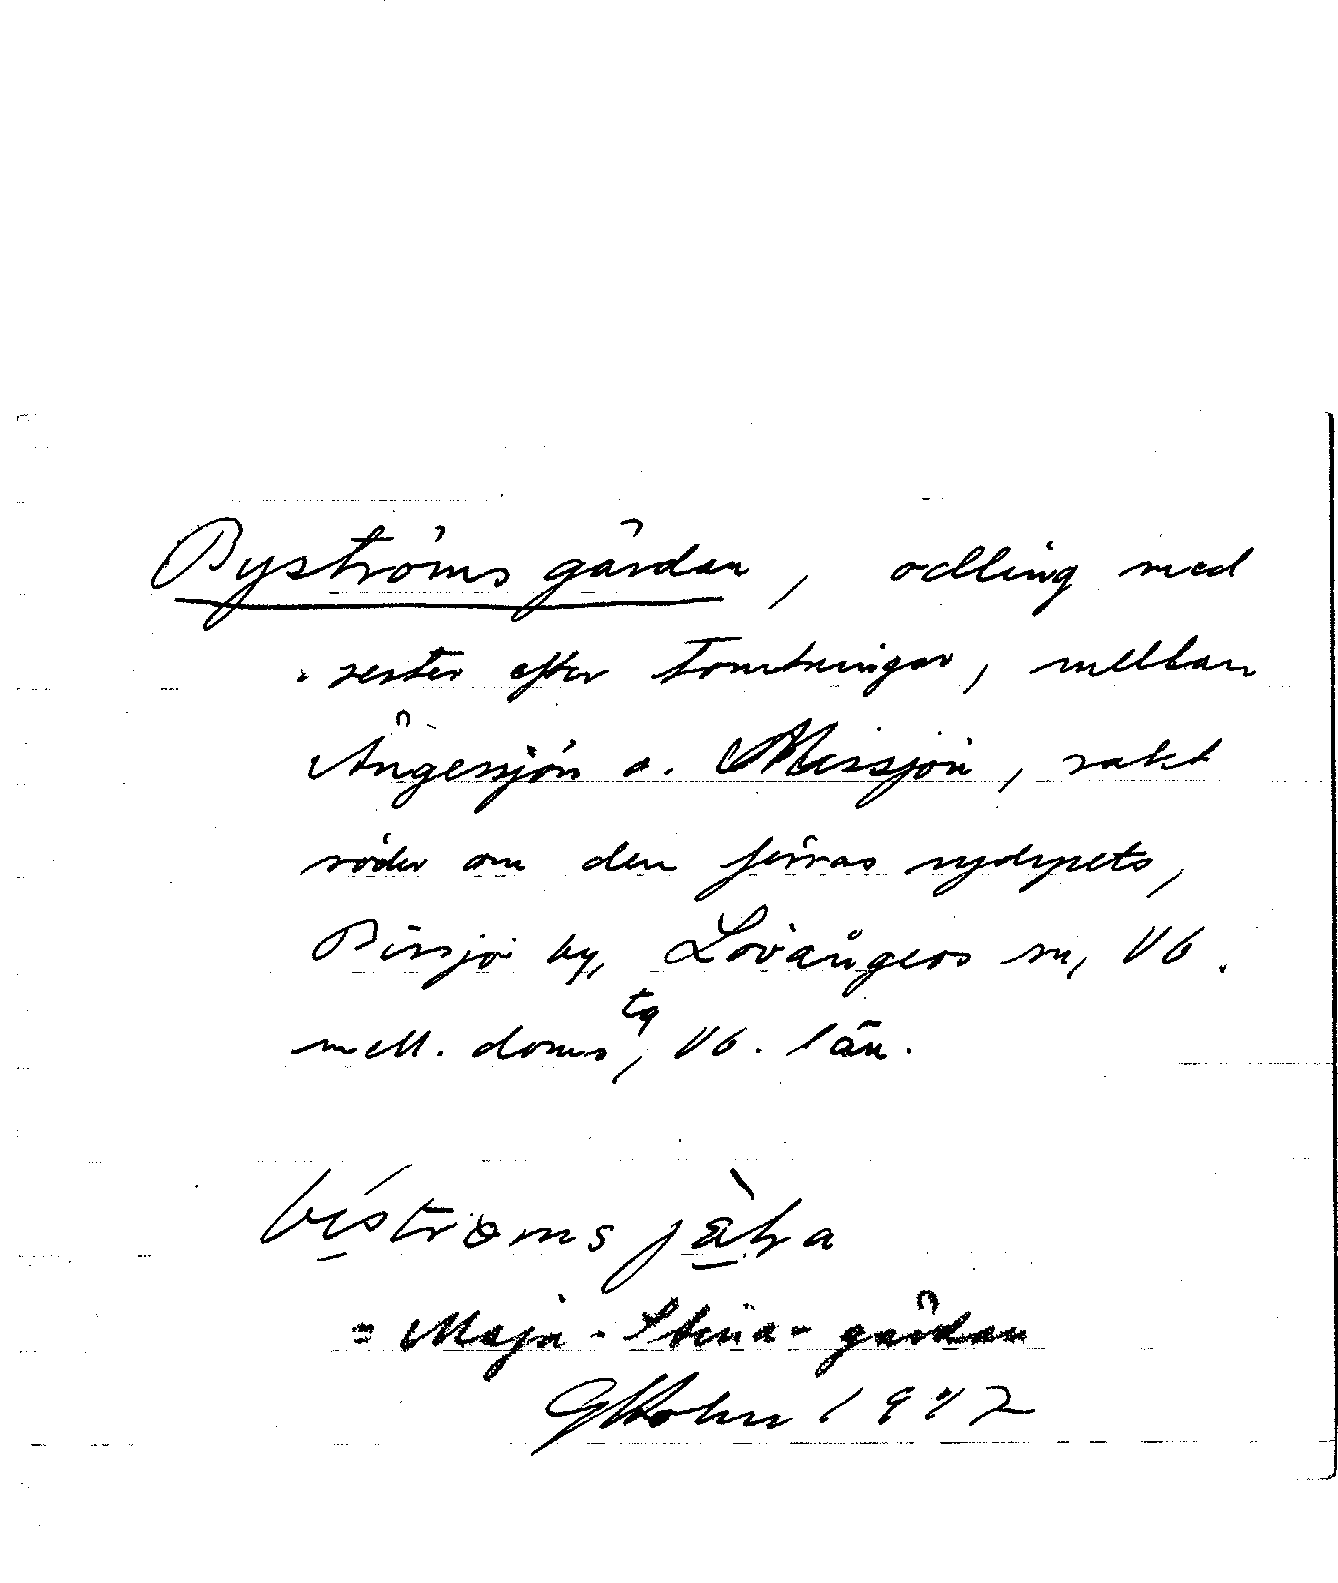 Byströms gårdan, odling med
rester efter tomtningar, mellan
Ångessjön o. Missjön, rakt
söder om den förras sydspets,
Bissjö by, Lövångers sn, Vb.
mell. doms tg, Vb. län.
= Maja-Stina-gårdan
GHolm 1947